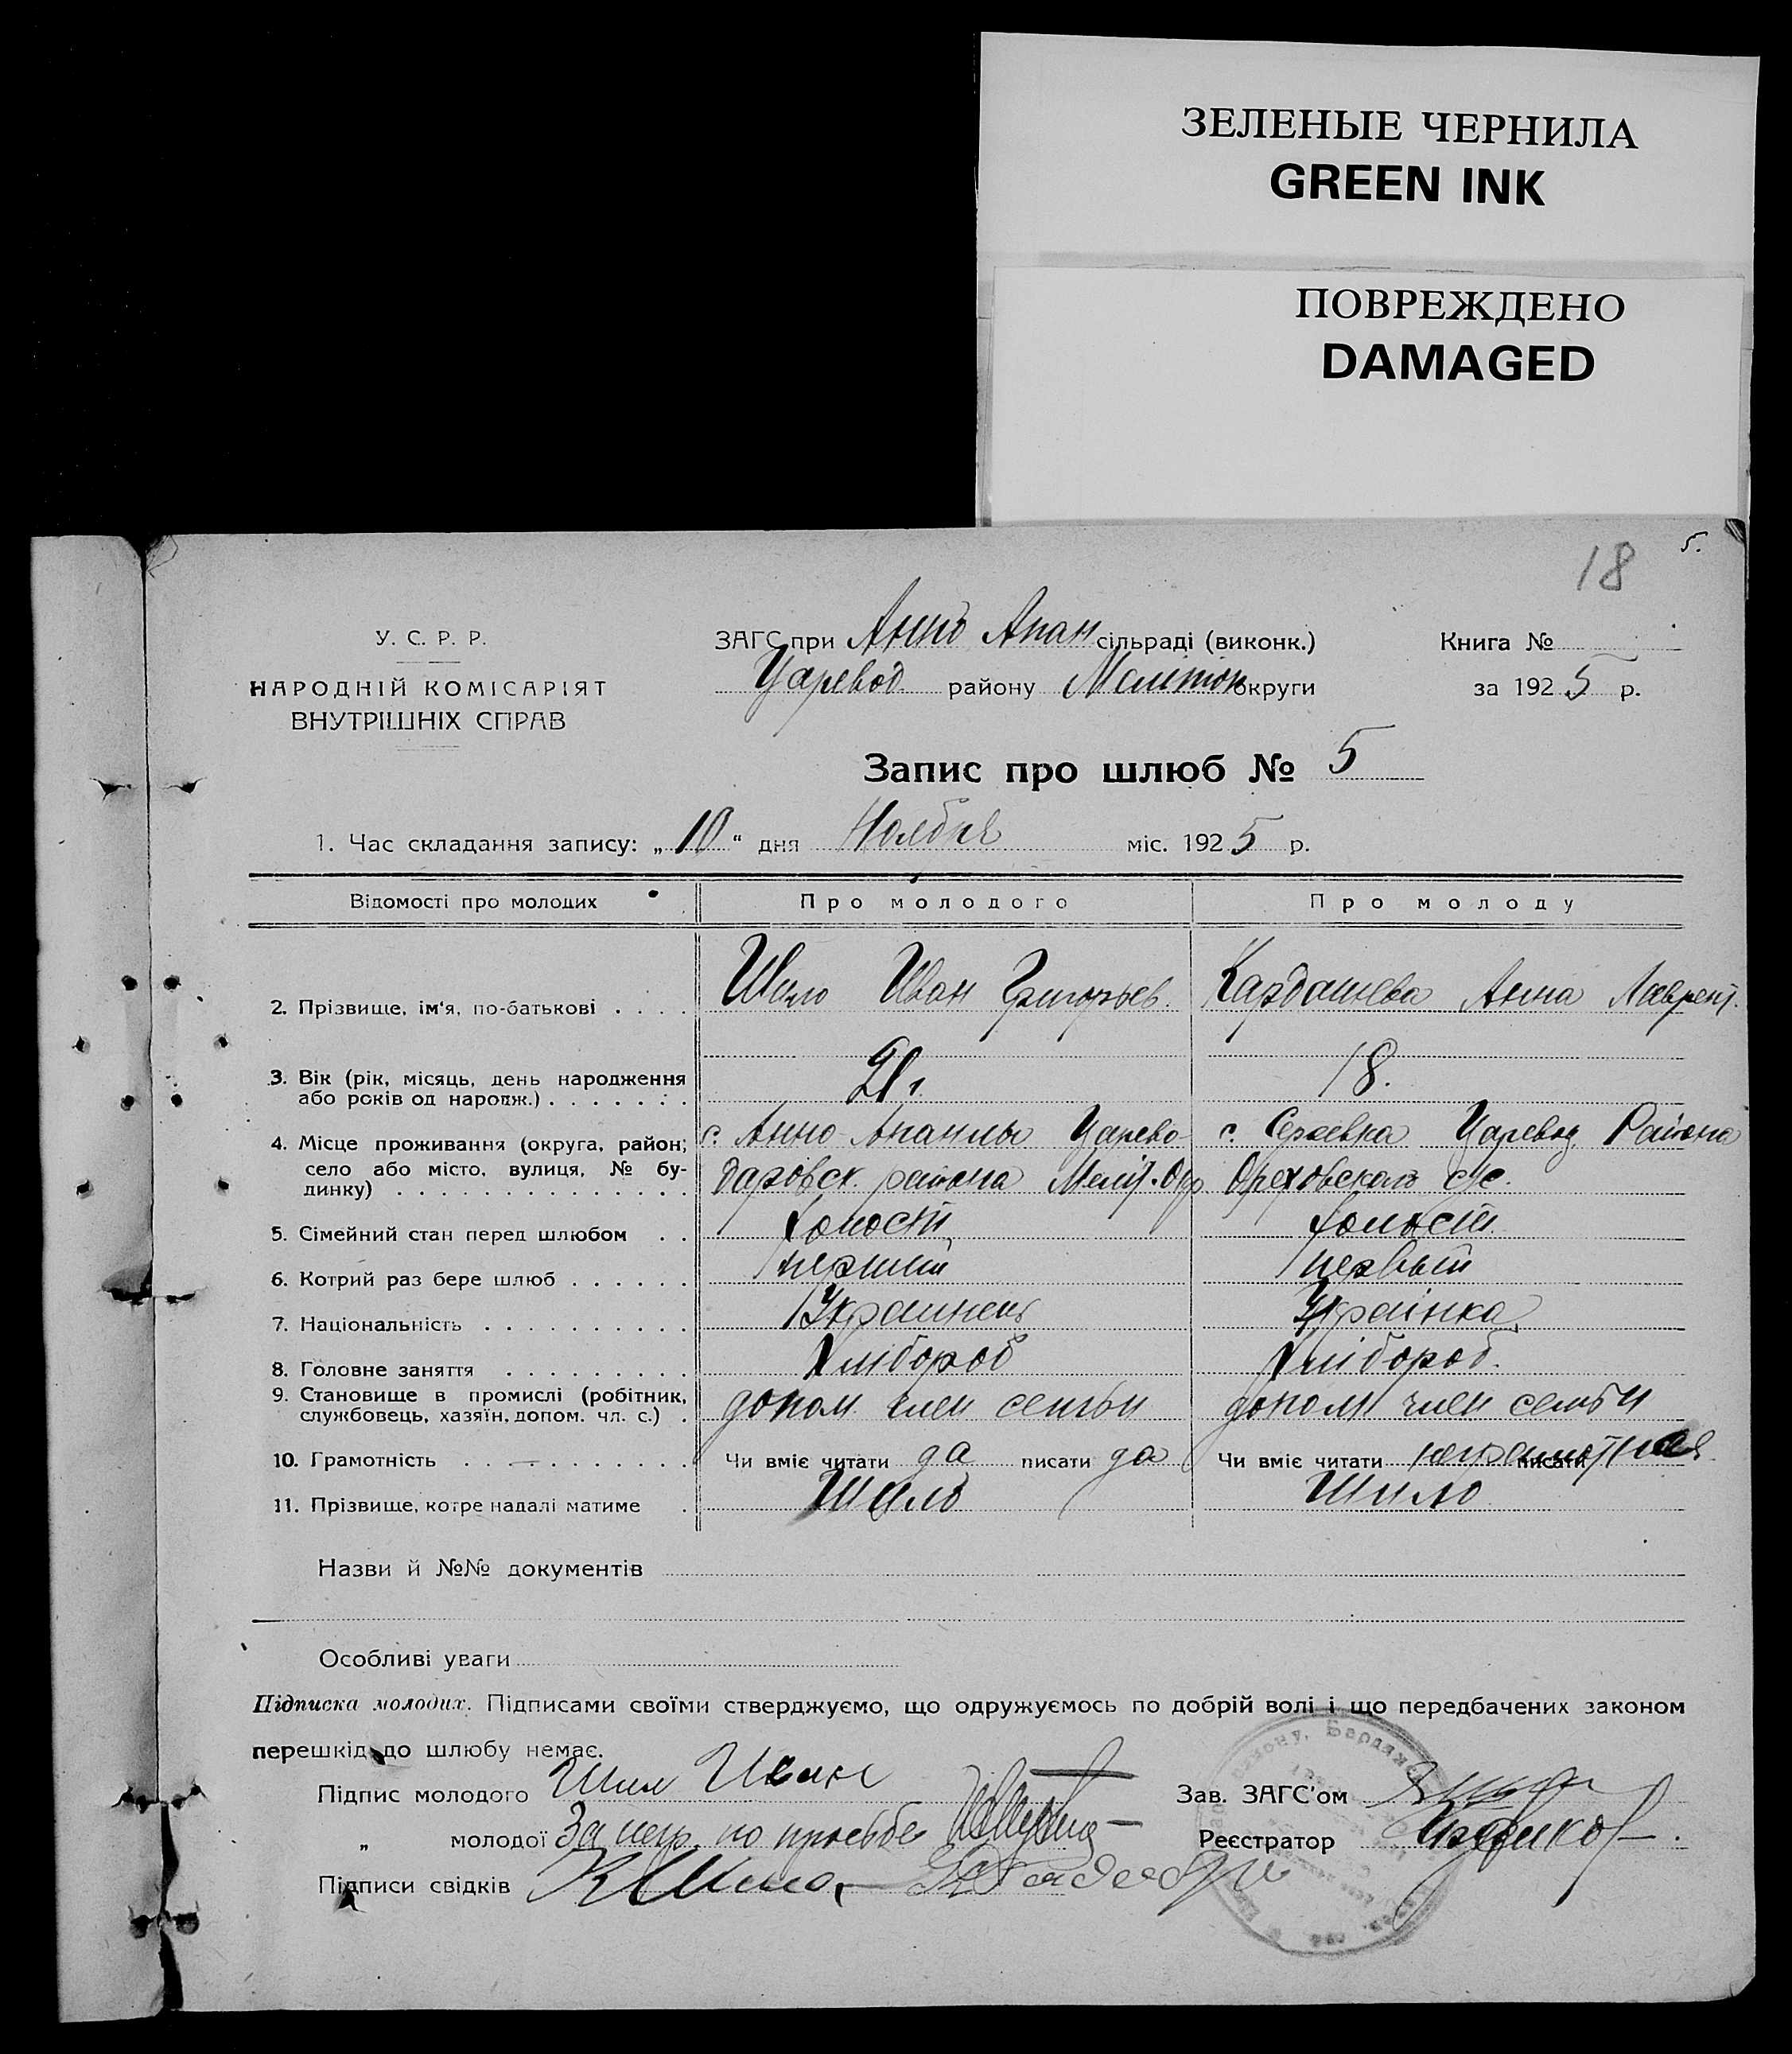 ЗЕЛЕНЫЕ ЧЕРНИЛА
GREEN INK
ПОВРЕЖДЕНО
DAMAGED
18 5.
У. С. Р. Р.
НАРОДНІЙ КОМІСАРІЯТ
ВНУТРІШНІХ СПРАВ
ЗАГС при Анно Апан сільраді (виконк.)
Царевод району Меліттоп округи
Книга №
за 1925 р.
Запис про шлюб № 5
1. Час складання запису: „10“ дня Ноября міс. 1925 р.
Відомості про молодих Про молодого Про молоду
2. Прізвище, ім'я, по-батькові . . . . Шило Иван Григорьев. Кардашева Анна Лаврент.
3. Вік (рік, місяць, день народження
або років од народж.) . . . . . . . 21 г. 18.
4. Місце проживання (округа, район; с. Анно-Апанлы Царево- с. Сергеевка Царевод Района
село або місто, вулиця, № бу- даровск. района Меліт. Окр Ореховского с/с.
динку) . . . . . . . . . . . . . .
5. Сімейний стан перед шлюбом . . холост холост.
6. Котрий раз бере шлюб . . . . . . перший первый
7. Національність . . . . . . . . . . Украинець Украінка
8. Головне заняття . . . . . . . . . Хлібороб Хлібороб.
9. Становище в промислі (робітник,
службовець, хазяїн, допом. чл. с.) . допом. член семьи допом член семьи
10. Грамотність . . . . . . . . . . . Чи вміє читати да писати да Чи вміє читати неграмотная писати
11. Прізвище, котре надалі матиме . Шило Шило
Назви й №№ документів
Особливі уваги
Підписка молодих. Підписами своїми стверджуємо, що одружуємось по добрій волі і що передбачених законом
перешкід до шлюбу немає.
Підпис молодого Шил Иван Зав. ЗАГС'ом
„ молодої За негр. по просьбе Реєстратор
Підписи свідків К Шило,